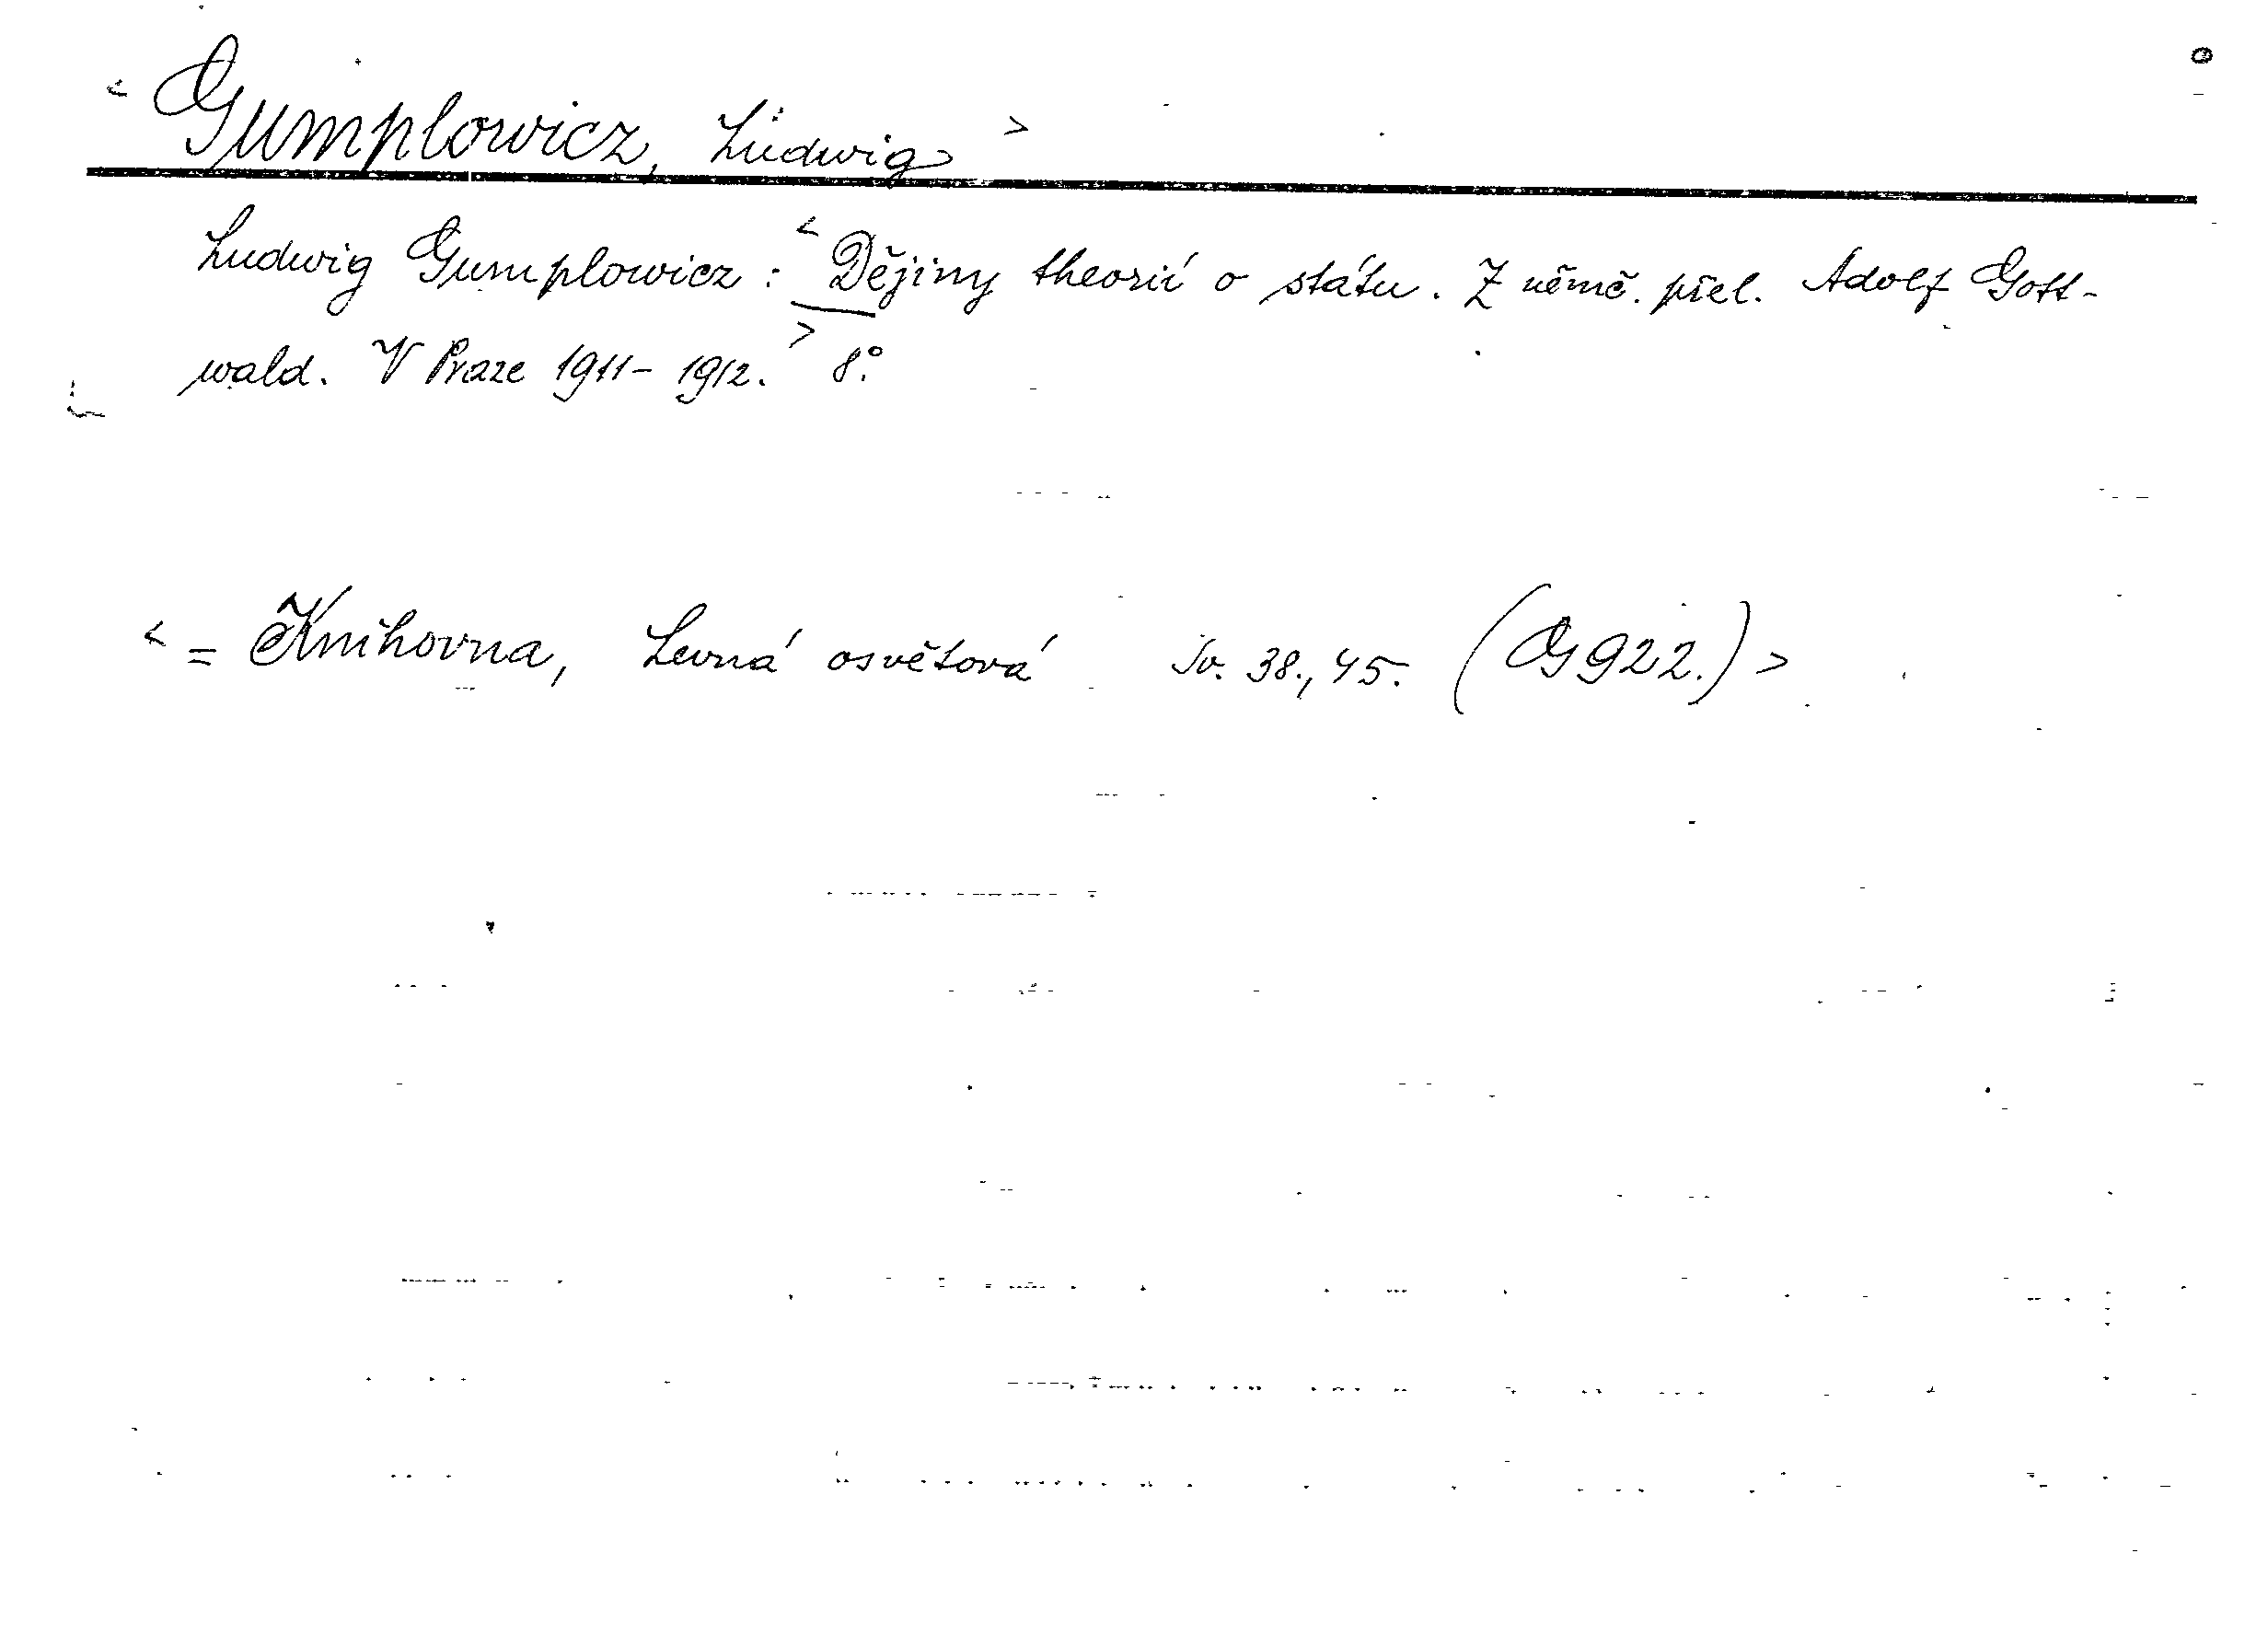 < Gumplowicz, Ludwig >
Ludwig Gumplowicz : < Dějiny theorií o státu. Z němč. přel. Adolf Gott-
wald. V Praze 1911- 1912. > 8°.
< = Knihovna, Levná osvětová Sv. 38., 45. (G 922.) >